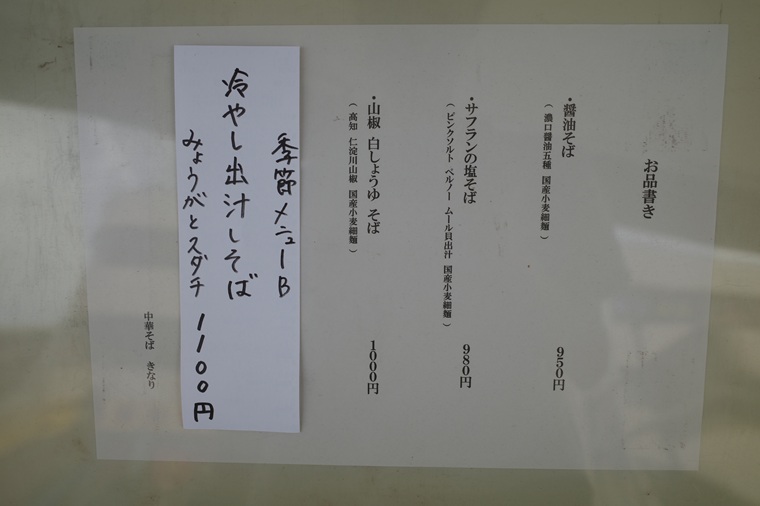 お品書き
・醤油そば
（ 濃口醤油五種 国産小麦細麺 ）
950円
・サフランの塩そば
（ ピンクソルト ペルノー ムール貝出汁 国産小麦細麺 ）
980円
・山椒 白しょうゆ そば
（ 高知 仁淀川山椒 国産小麦細麺 ）
1000円
季節メニューB
冷やし出汁しそば
みょうがとスダチ 1100円
中華そば きなり